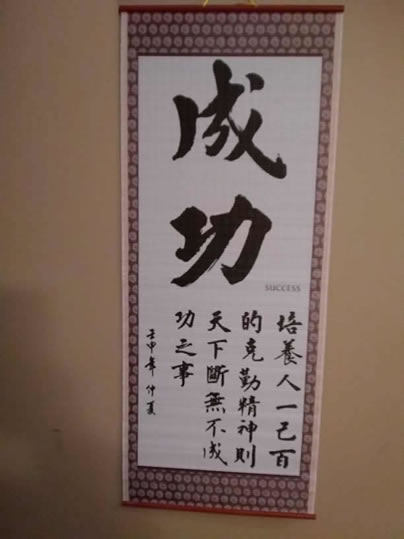 成功
SUCCESS
培養人一己百
的克勤精神則
天下斷無不成
功之事
壬申年 仲夏